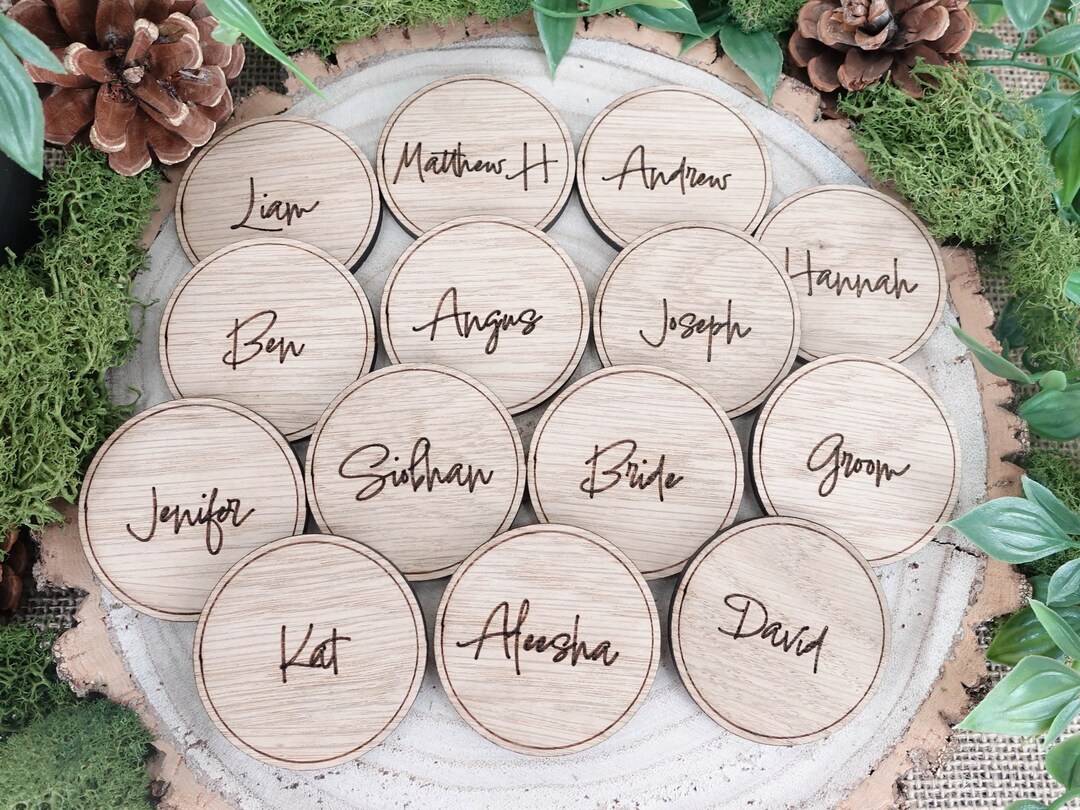 Liam
Matthew H
Andrew
Hannah
Ben
Angus
Joseph
Jenifer
Siobhan
Bride
Groom
Kat
Aleesha
David